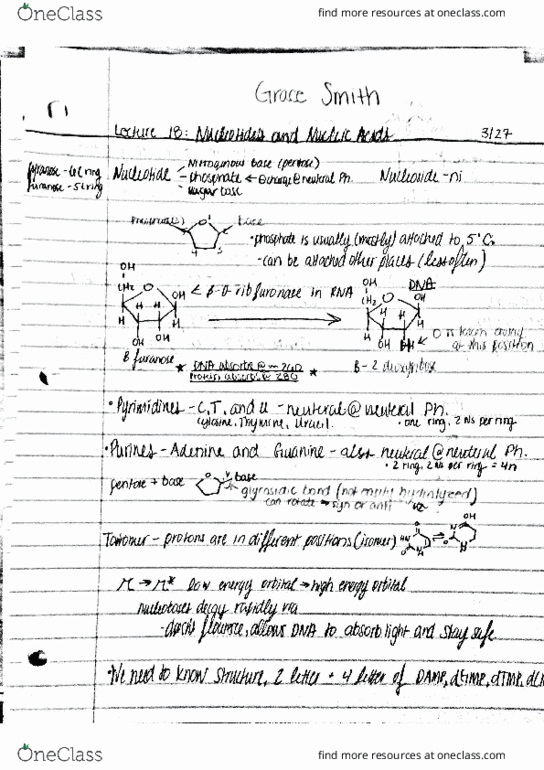 OneClass
find more resources at oneclass.com
Grace Smith
Lecture 18: Nucleotides and Nucleic Acids 3/27
pyranose - 6C ring
furanose - 5C ring
Nucleotide
Nitrogenous base (pentose)
phosphate ← ⊖ charge @ neutral Ph.
sugar base
Nucleoside - ni
base
4 5
• phosphate is usually (mostly) attached to 5'C.
- can be attached other places (less often)
OH
CH2 O OH
H H
H H
OH OH
← β-D-ribofuranose in RNA
B furanose
DNA
OH
CH2 O OH
H H
H H
OH
O is taken away
at this position
B-2 deoxyribose
★ DNA absorbs @ ~ 260 ★
Proteins absorb @ 280
• Pyrimidines - C, T, and U - neutral @ neutral Ph.
cytosine, Thymine, Uracil. • one ring, 2 Ns per ring
• Purines - Adenine and Guanine - also neutral @ neutral Ph.
• 2 ring, 2 Ns per ring = 4n
pentose + base
base
glycosidic bond (not easily hydrolyzed)
can rotate → syn or anti
Tautomer - protons are in different positions (isomer)
π → π* low energy orbital → high energy orbital
decay rapidly via
allows DNA to absorb light and stay safe
• We need to know structure, 2 letter + 4 letter of DAMP, dGMP, dTMP,
OneClass
find more resources at oneclass.com